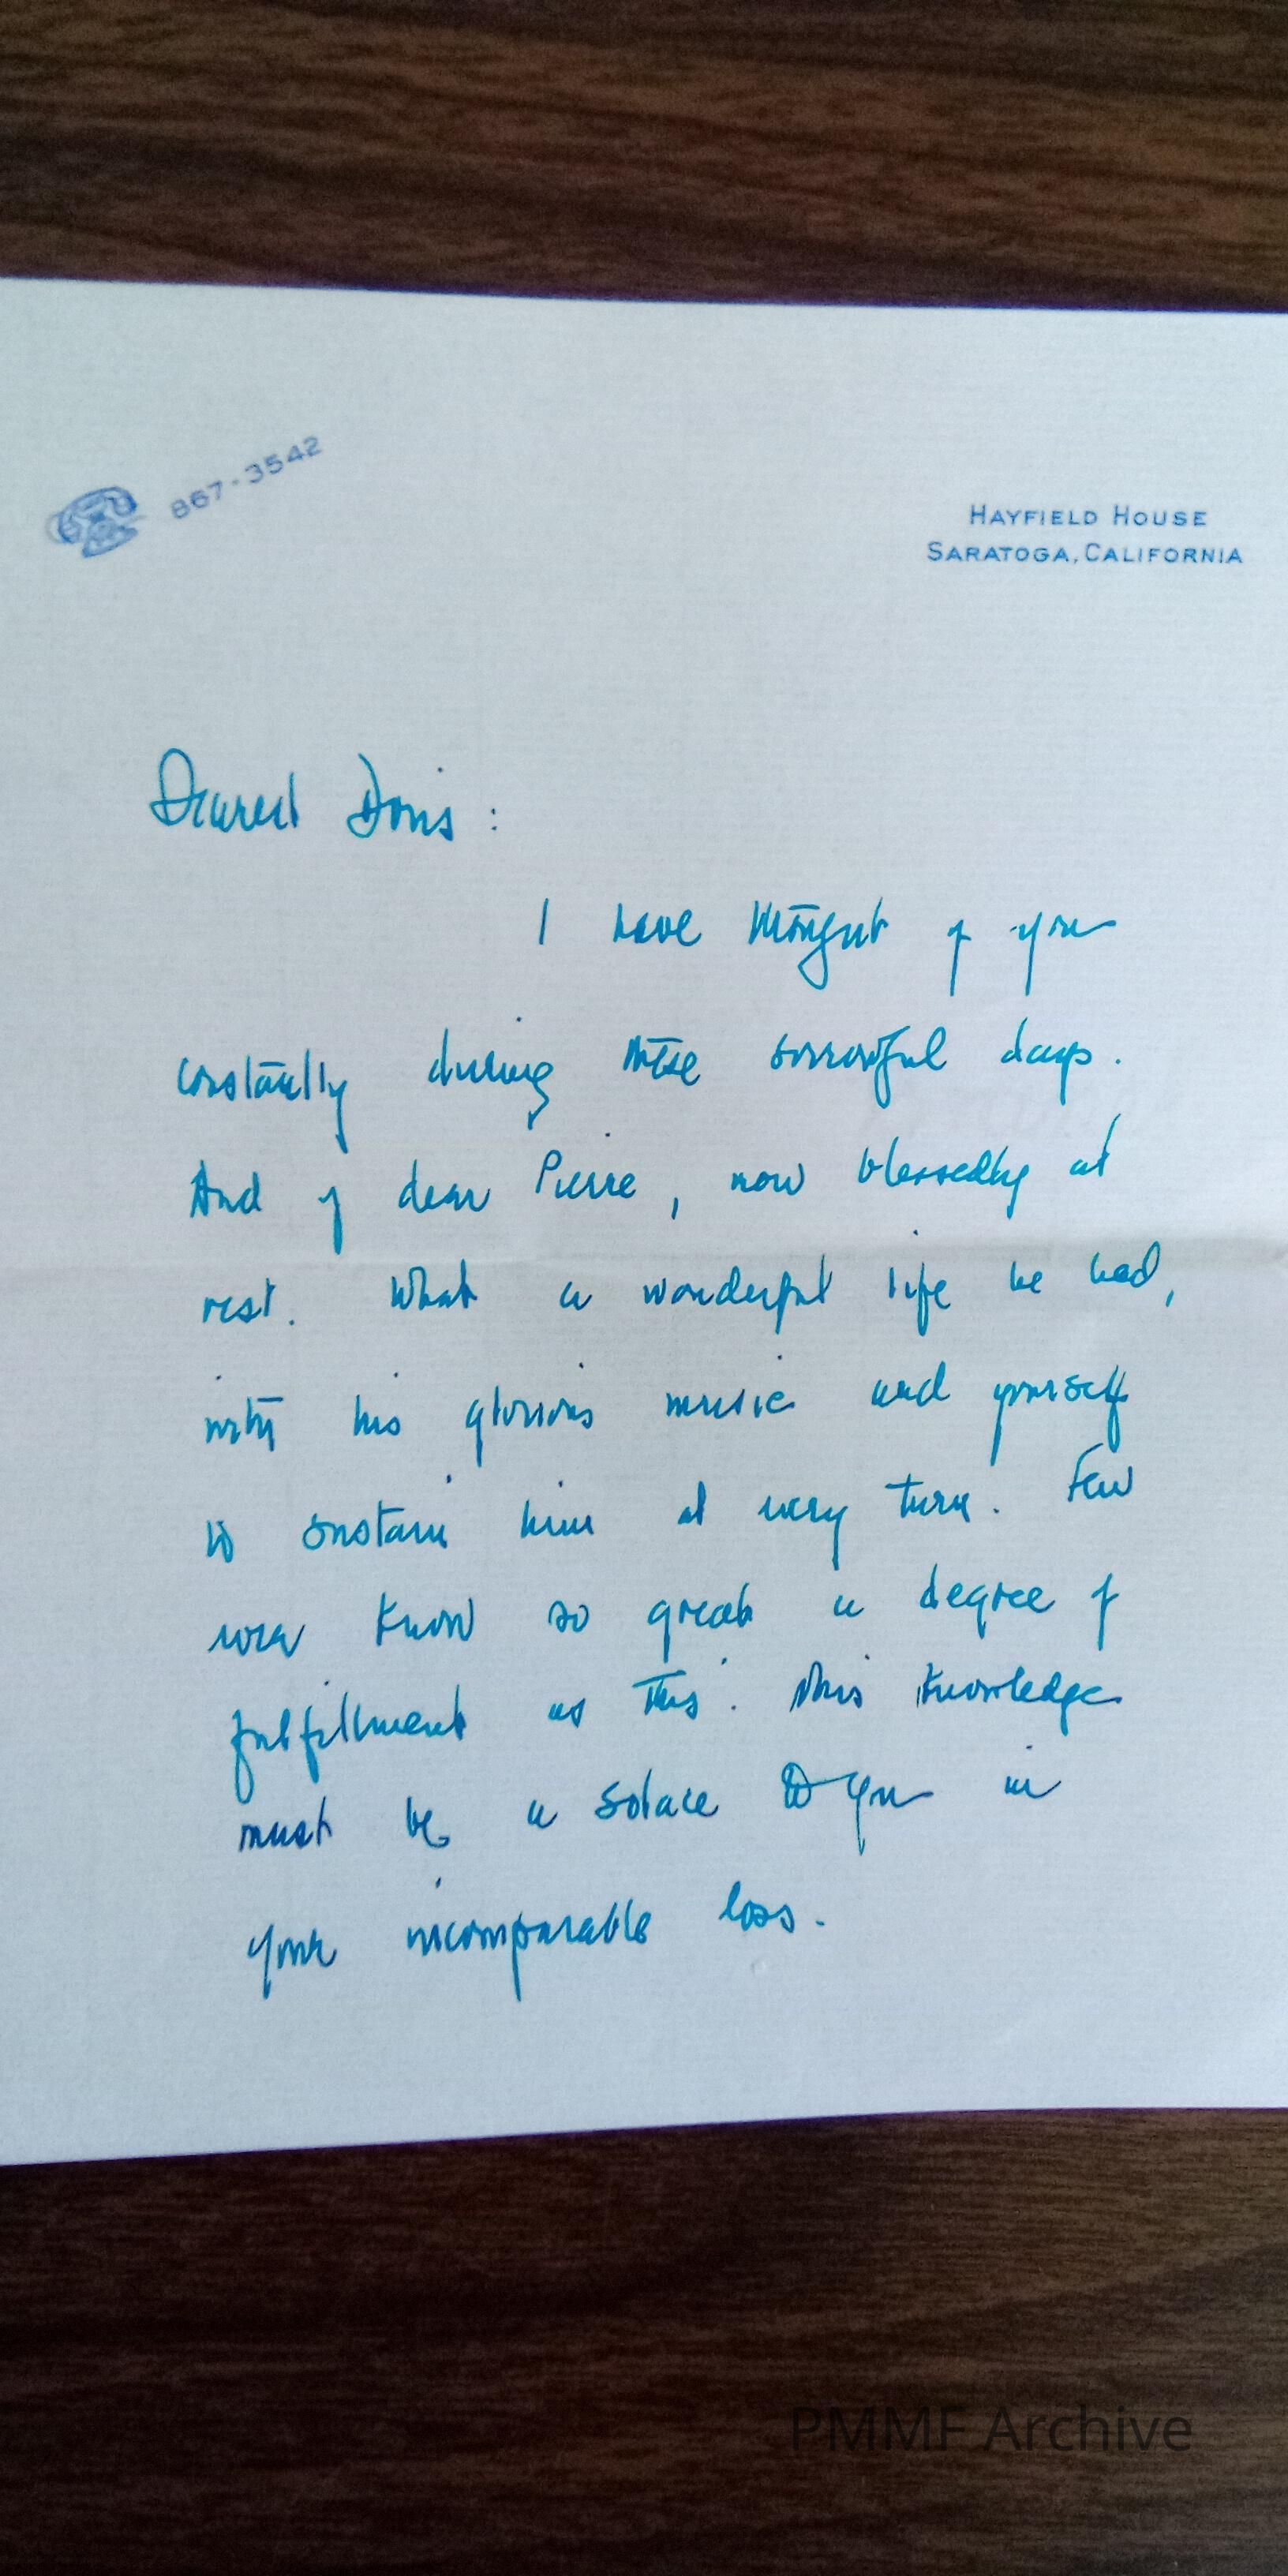 867-3542
HAYFIELD HOUSE
SARATOGA, CALIFORNIA
Dearest Doris:
I have thought of you
constantly during these sorrowful days.
And of dear Pierre, now blessedly at
rest. What a wonderful life he had,
with his glorious music and yourself
to sustain him at every turn. Few
ever know so great a degree of
fulfillment as this. This knowledge
must be a solace to you in
your incomparable loss.
PMMF Archive